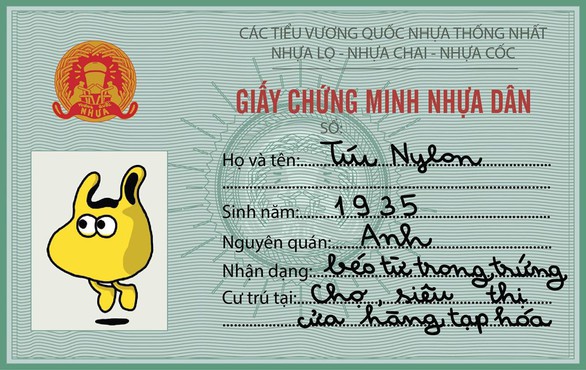 CÁC TIỂU VƯƠNG QUỐC NHỰA THỐNG NHẤT
NHỰA LỌ - NHỰA CHAI - NHỰA CỐC
NHỰA
GIẤY CHỨNG MINH NHỰA DÂN
SỐ:
Họ và tên: Túi Nylon
Sinh năm: 1935
Nguyên quán: Anh
Nhận dạng: béo từ trong trứng
Cư trú tại: Chợ, siêu thị
cửa hàng tạp hóa